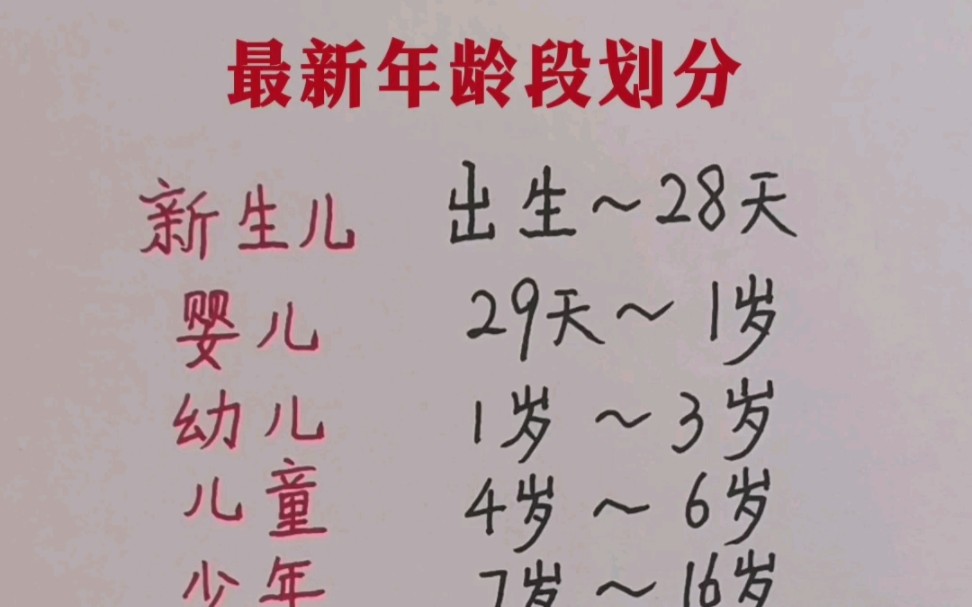 最新年龄段划分
新生儿 出生~28天
婴儿 29天~1岁
幼儿 1岁~3岁
儿童 4岁~6岁
少年 7岁~16岁